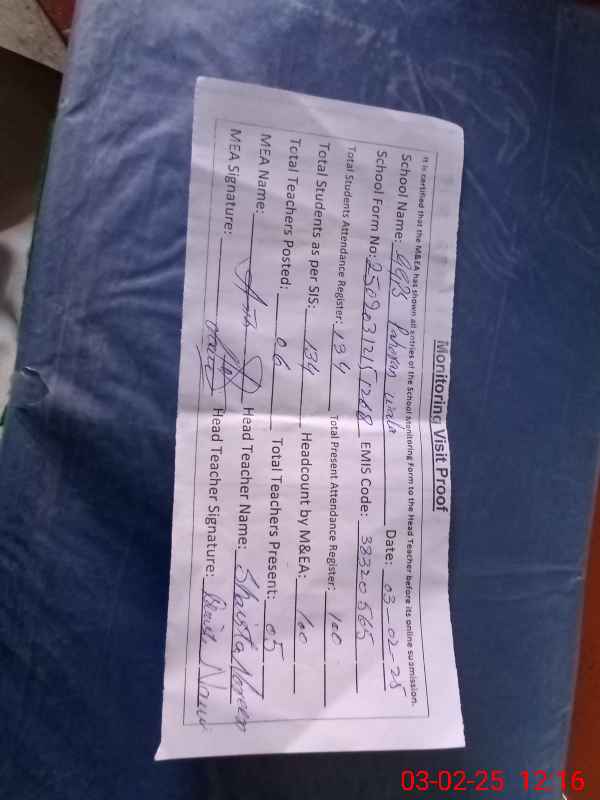 Monitoring Visit Proof
It is certified that the M&EA has shown all entries of the School Monitoring Form to the Head Teacher before its online submission.
School Name: GGPS Pahoran wala Date: 03-02-25
School Form No: EMIS Code: 38320565
Total Students Attendance Register: 134 Total Present Attendance Register: 100
Total Students as per SIS: 134 Headcount by M&EA: 100
Total Teachers Posted: 06 Total Teachers Present: 05
MEA Name: Head Teacher Name: Shaista Noreen
MEA Signature: Head Teacher Signature:
03-02-25 12:16